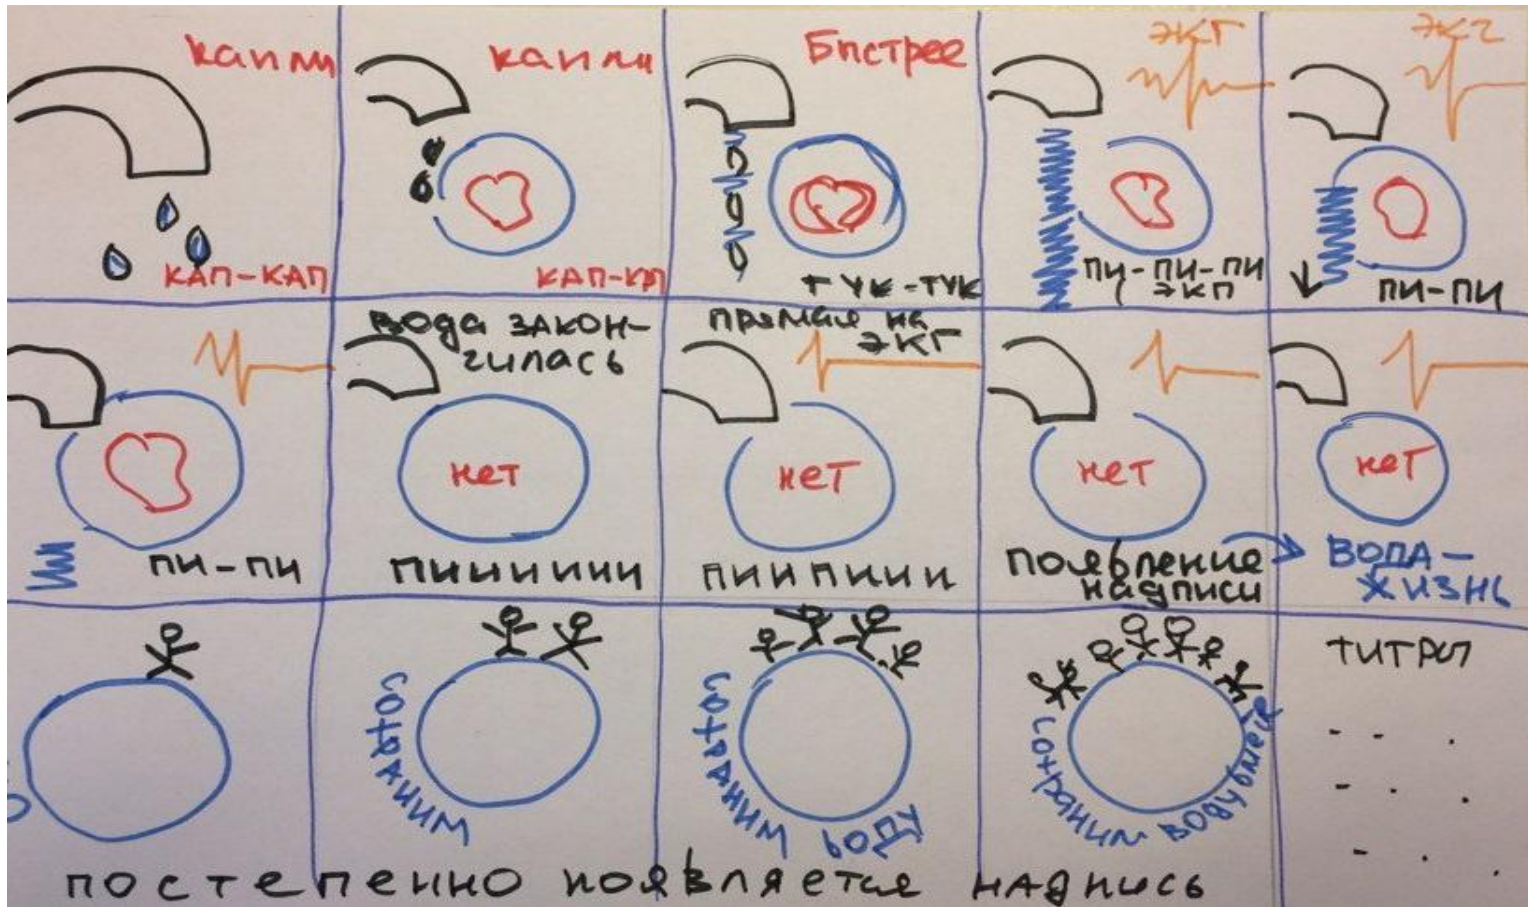 капли
КАП-КАП
капли
КАП-КАП
Быстрее
ТУК-ТУК
ЭКГ
ПИ-ПИ-ПИ
ЭКГ
ПИ-ПИ
ПИ-ПИ
вода ЗАКОН-
ЧИЛАСЬ
нет
ПИИИИИИ
прямая на
ЭКГ
нет
ПИИПИИИ
нет
появление
надписи
нет
ВОДА –
ЖИЗНЬ
сохраним
сохраним воду
сохраним воду вместе
титры
постепенно появляется надпись